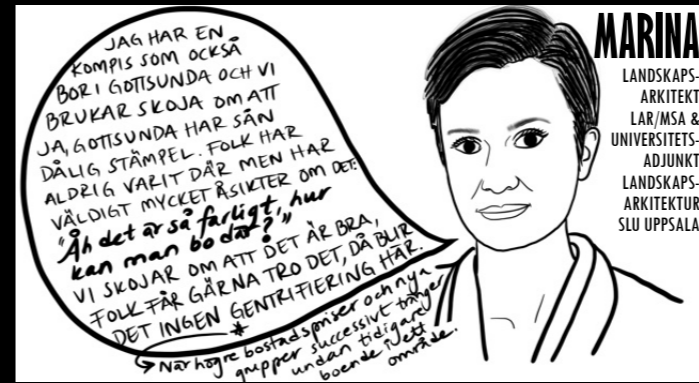 JAG HAR EN
KOMPIS SOM OCKSÅ
BOR I GOTTSUNDA OCH VI
BRUKAR SKOJA OM ATT
JA, GOTTSUNDA HAR SÅN
DÅLIG STÄMPEL. FOLK HAR
ALDRIG VARIT DÄR MEN HAR
VÄLDIGT MYCKET ÅSIKTER OM DET:
"Åh det är så farligt, hur
kan man bo där?"
VI SKOJAR OM ATT DET ÄR BRA,
FOLK FÅR GÄRNA TRO DET, DÅ BLIR
DET INGEN GENTRIFIERING HÄR.
*
När högre bostadspriser och nya
grupper successivt tränger
undan tidigare
boende i ett
område.
MARINA
LANDSKAPS-
ARKITEKT
LAR/MSA &
UNIVERSITETS-
ADJUNKT
LANDSKAPS-
ARKITEKTUR
SLU UPPSALA